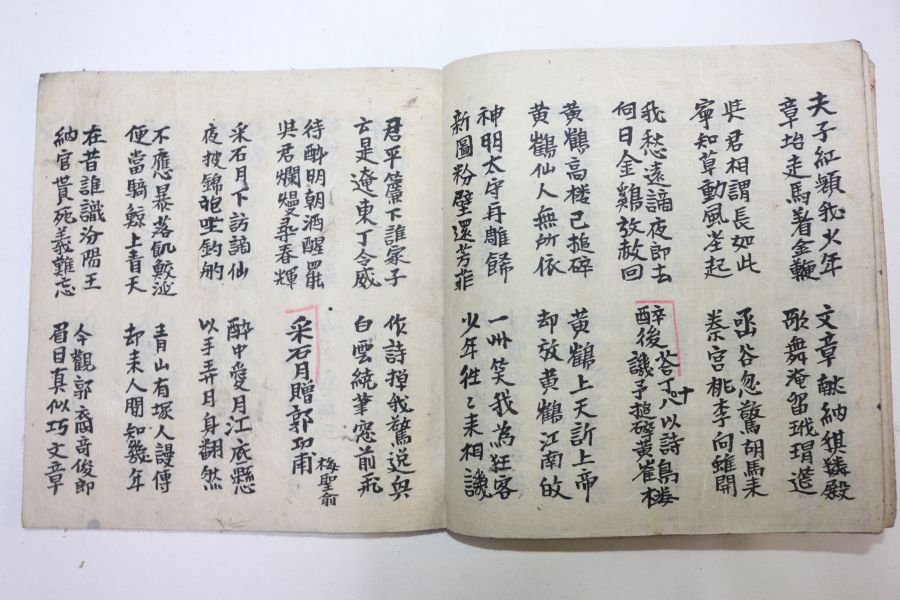 夫子紅顔我少年
章坮走馬着金鞭
文章献納猉獜殿
歌舞淹留玳瑁莚
吳君相謂長如此
寧知草動風荃起
函谷忽驚胡馬来
秦宮桃李向誰開
我愁遠謫夜郎去
何日金鷄放赦回
醉後答丁十八以詩
譏予搥碎黃崔楼
黃鶴高楼已搥碎
黃鶴仙人無所依
黃鶴上天訴上帝
却放黃鶴江南皈
神明太守再雕餙
新圖粉壁還芳菲
一州笑我為狂客
少年徃々来相譏
君平簾下誰家子
云是遼東丁令威
作詩掉我驚逸興
白雲繞筆窓前飛
待酔明朝酒醒罷
吳君爛熳尋春輝
采石月贈郭功甫
梅聖俞
采石月下訪謫仙
夜披錦袍坐釣舩
酔中愛月江底懸
以手弄月身翻然
不應暴落飢鮫涎
便當騎鯨上青天
青山有塚人謾傳
却来人間知幾年
在昔誰識汾陽王
納官貰死義難忘
今觀郭裔奇俊郎
眉目真似巧文章